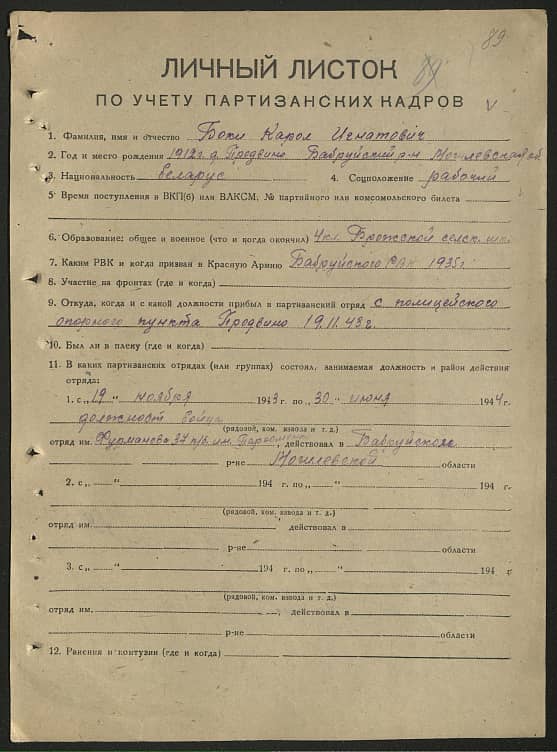 89
89
ЛИЧНЫЙ ЛИСТОК
ПО УЧЕТУ ПАРТИЗАНСКИХ КАДРОВ
1. Фамилия, имя и отчество Боки Карол Игнатович
2. Год и место рождения 1912 г. д. Продвино Бабруйский р-н Могилевская об
3. Национальность беларус 4. Соцположение рабочий
5. Время поступления в ВКП(б) или ВЛКСМ, № партийного или комсомольского билета
6. Образование: общее и военное (что и когда окончил) 4 кл. Брожской сельск. шк.
7. Каким РВК и когда призван в Красную Армию Бабруйского РВК 1935 г.
8. Участие на фронтах (где и когда)
9. Откуда, когда и с какой должности прибыл в партизанский отряд с полицейского
опорного пункта Продвино 19.11.43 г.
10. Был ли в плену (где и когда)
11. В каких партизанских отрядах (или группах) состоял, занимаемая должность и район действия
отряда:
1. с „19“ ноября 1943 г. по „30“ июня 1944 г.
должност бойца
(рядовой, ком. взвода и т. д.)
отряд им. Фурманова 37 п/б. им. Пархоменко, действовал в Бабруйском
р-не Могилевской области
2. с „ “ 194 г. по „ “ 194 г.
(рядовой, ком. взвода и т. д.)
отряд им. действовал в
р-не области
3. с „ “ 194 г. по „ “ 194 г.
(рядовой, ком. взвода и т. д.)
отряд им. , действовал в
р-не области
12. Ранения и контузии (где и когда)